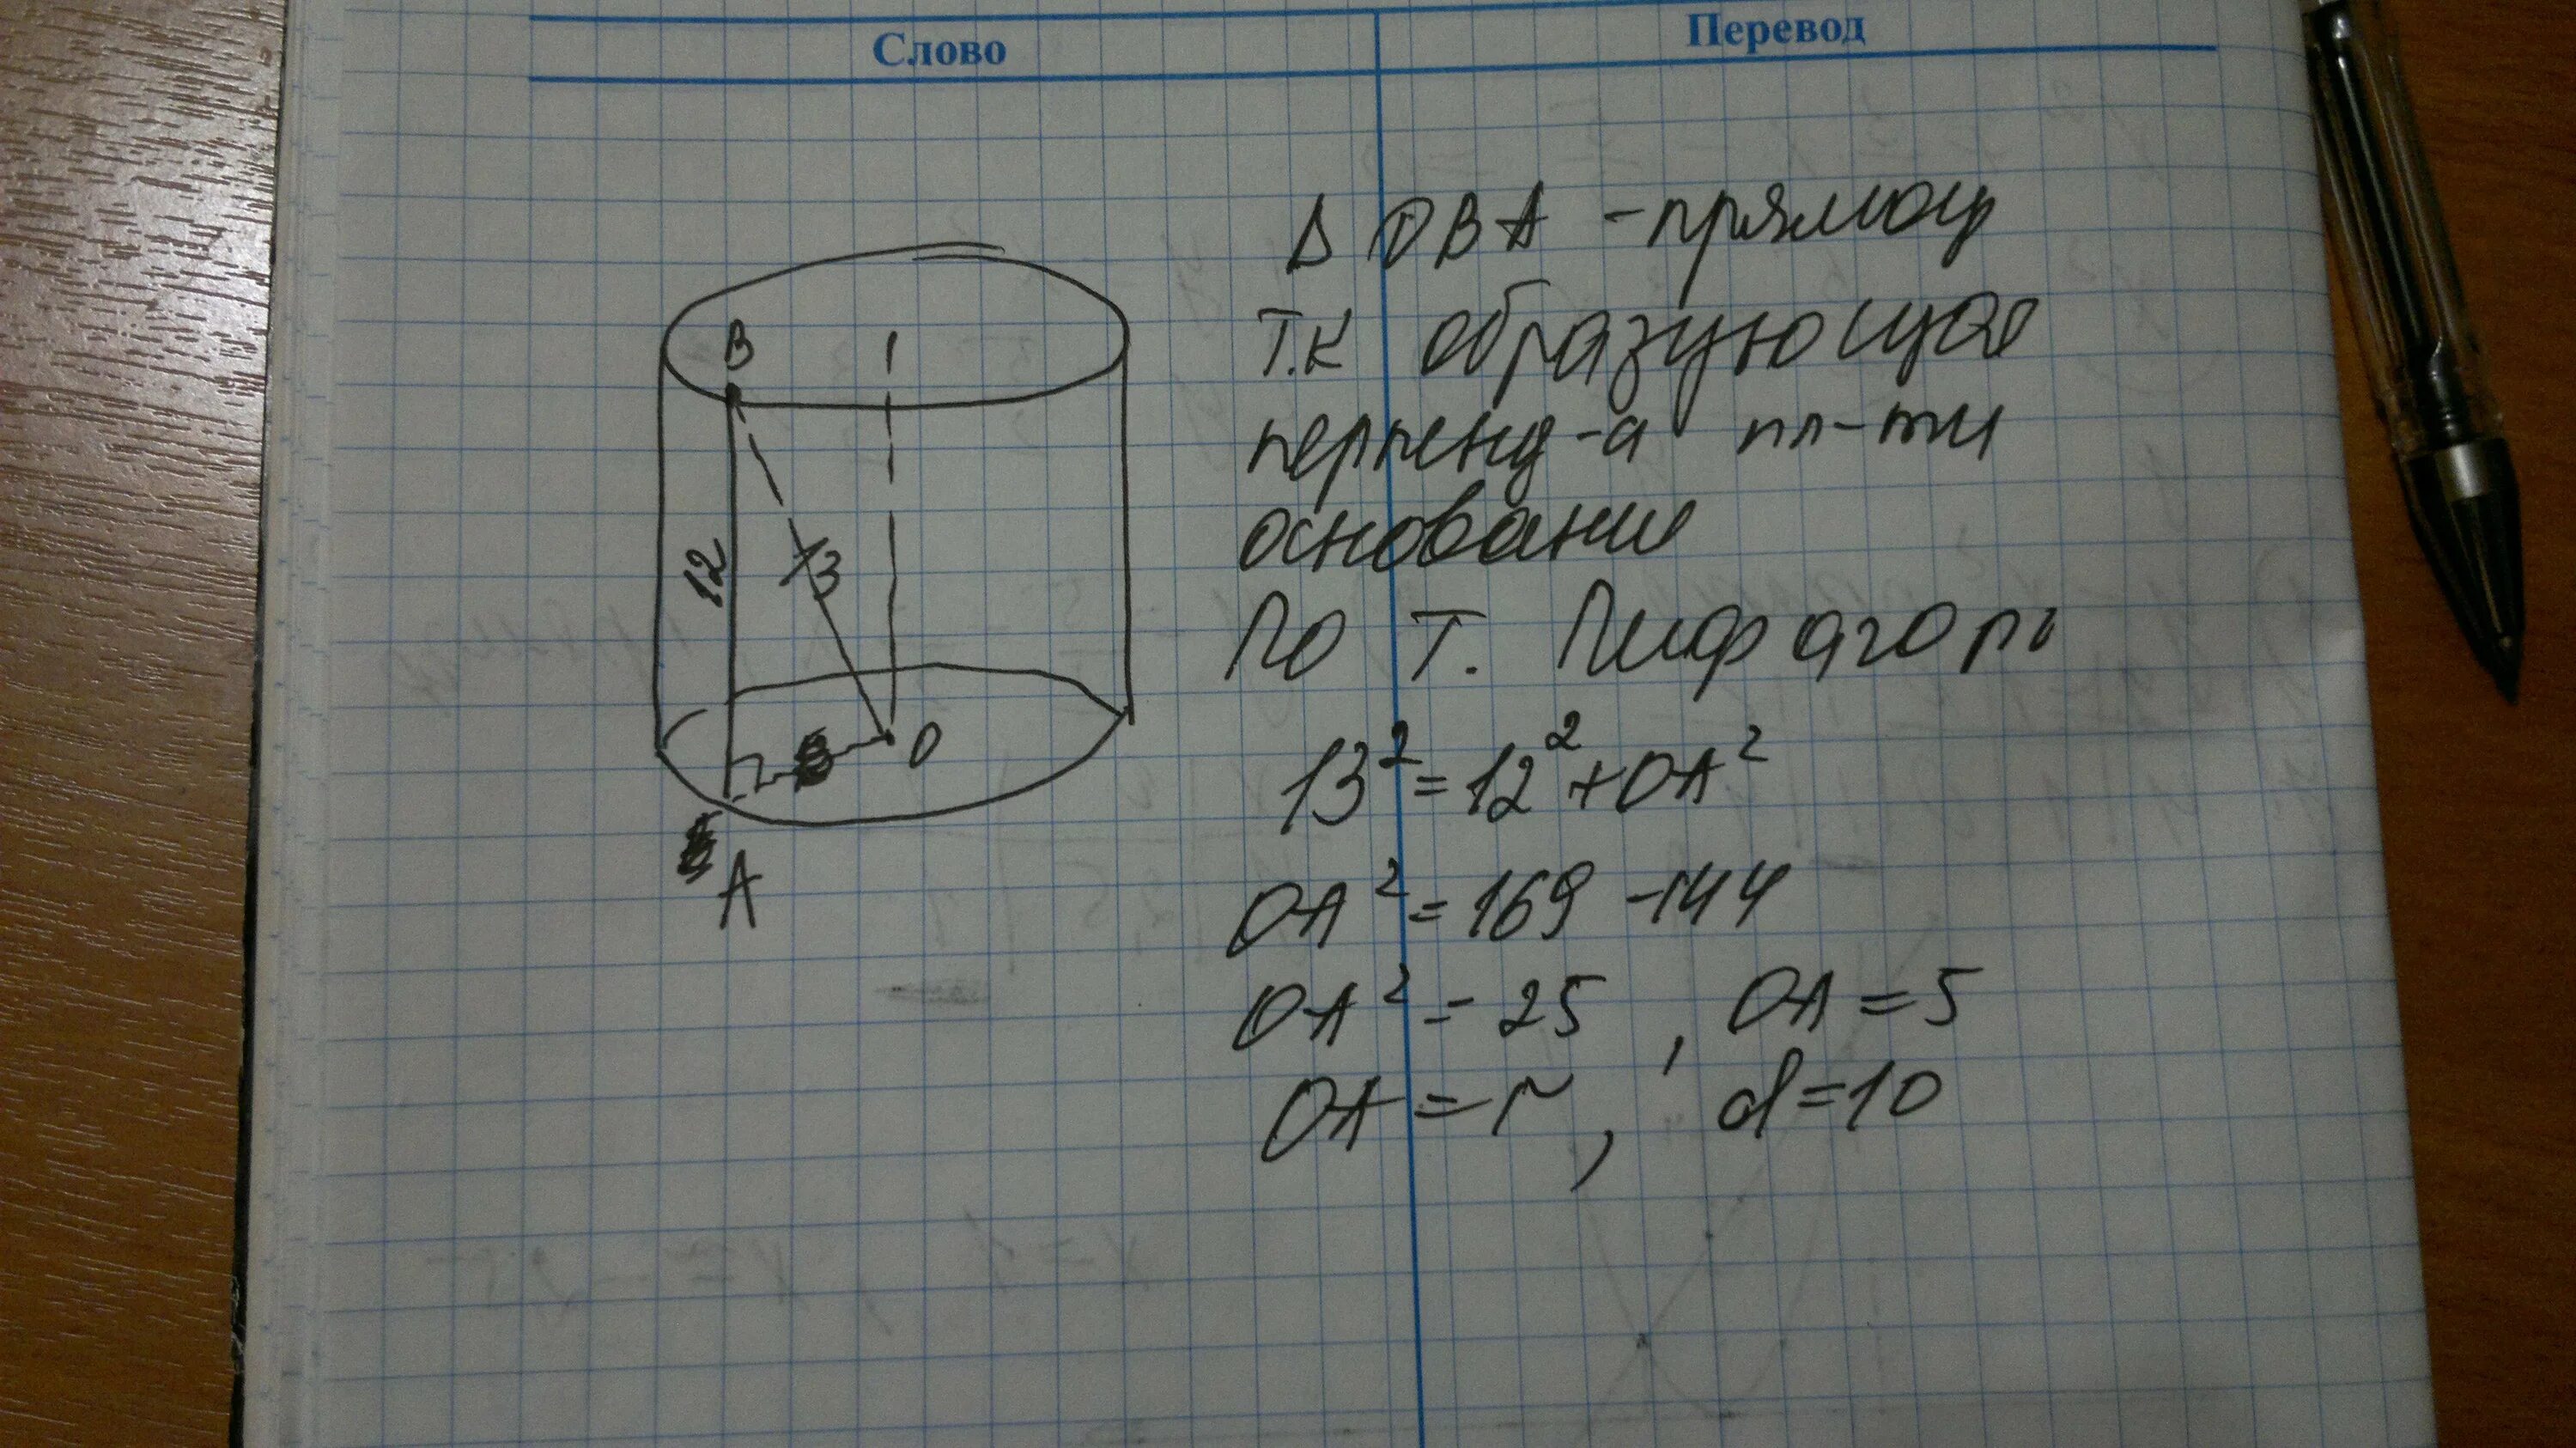 Слово
Перевод
Δ OBA - прямоуг
т.к образующая
перпенд-а пл-ти
основание
По т. Пифагоры
13² = 12² + OA²
OA² = 169 - 144
OA² = 25 , OA = 5
OA = r , d = 10
B
12
13
O
A